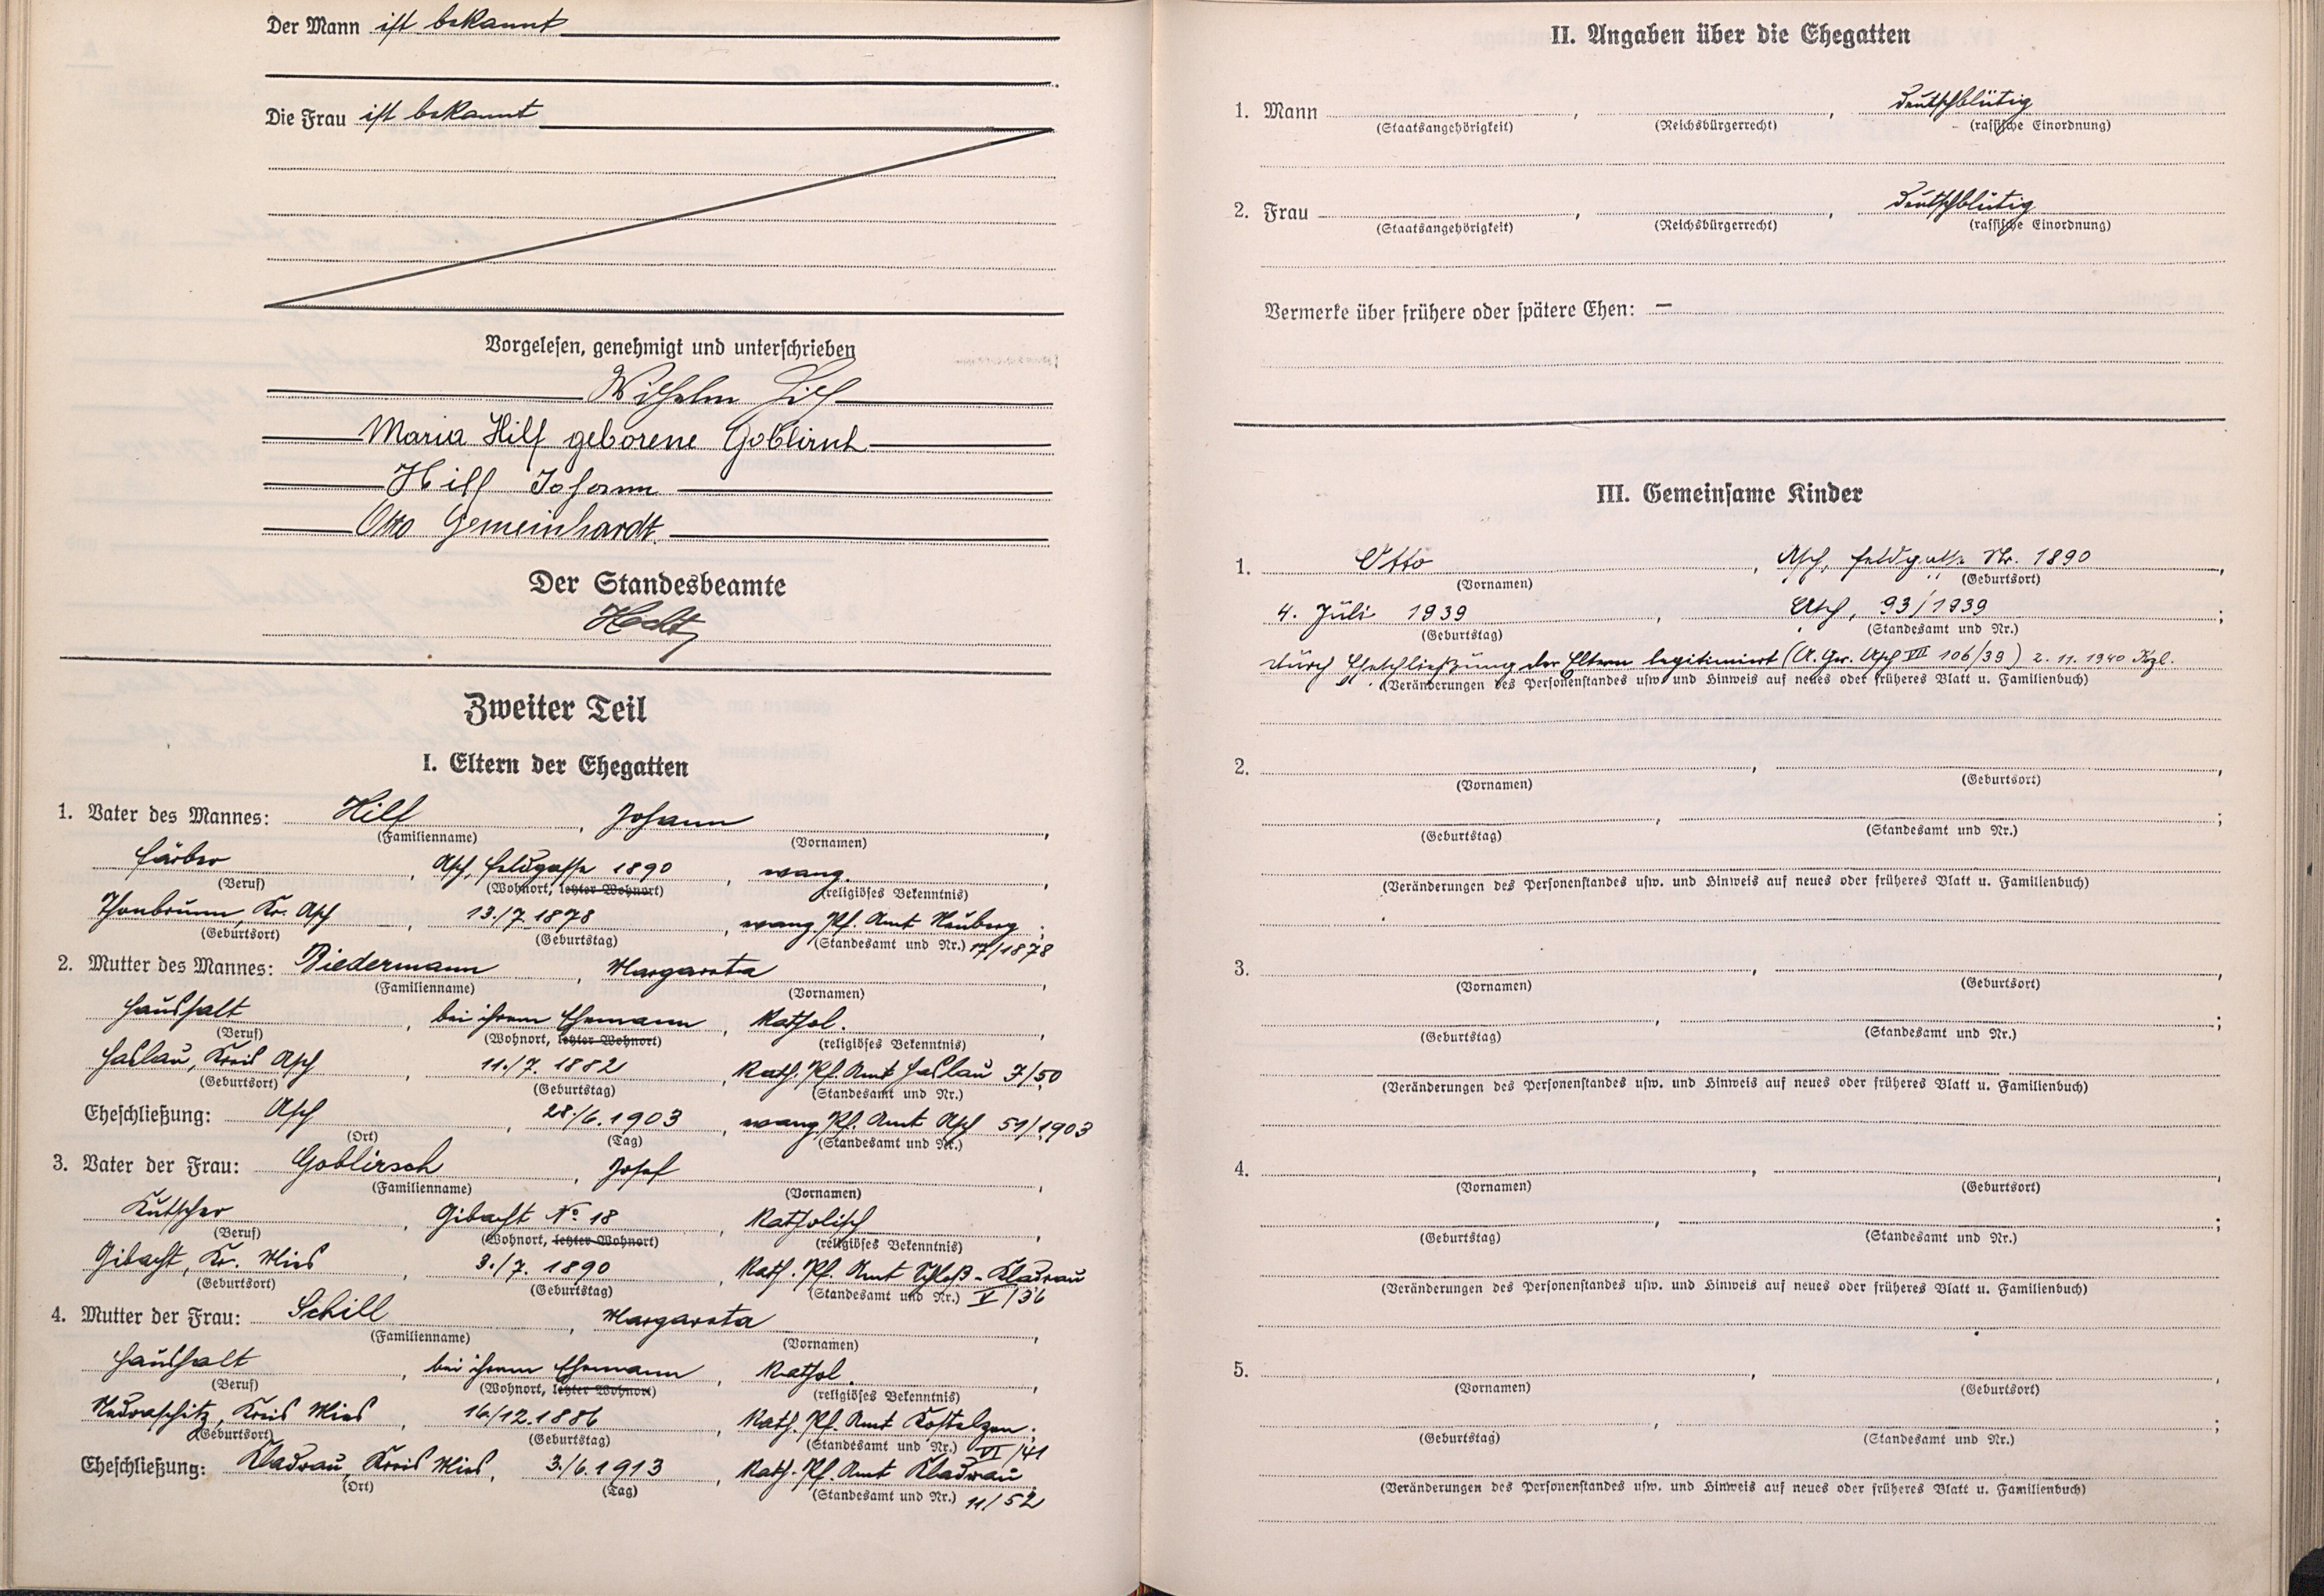 Der Mann ist bekannt
Die Frau ist bekannt
Vorgelesen, genehmigt und unterschrieben
Wilhelm Hilf
Maria Hilf geborene Goblirsch
Hilf Johann
Otto Gemeinhardt.
Der Standesbeamte
Zweiter Teil
I. Eltern der Ehegatten
1. Vater des Mannes: Hilf, Johann,
(Familienname) (Vornamen)
Färber, Asch, Feldgasse 1890, evang.,
(Beruf) (Wohnort, letzter Wohnort) (religiöses Bekenntnis)
Thonbrunn, Kr. Asch, 13./7.1878, evang. Pf. Amt Neuberg;
(Geburtsort) (Geburtstag) (Standesamt und Nr.) 17/1878
2. Mutter des Mannes: Biedermann, Margareta,
(Familienname) (Vornamen)
Haushalt, bei ihrem Ehemann, kathol.,
(Beruf) (Wohnort, letzter Wohnort) (religiöses Bekenntnis)
Haslau, Kreis Asch, 11./7. 1882, Kath. Pf. Amt Haslau 7/50
(Geburtsort) (Geburtstag) (Standesamt und Nr.)
Eheschließung: Asch, 28./6.1903, evang. Pf. Amt Asch 51/1903
(Ort) (Tag) (Standesamt und Nr.)
3. Vater der Frau: Goblirsch, Josef,
(Familienname) (Vornamen)
Kutscher, Gibacht No 18, katholisch,
(Beruf) (Wohnort, letzter Wohnort) (religiöses Bekenntnis)
Gibacht, Kr. Mies, 3./7. 1890, Kath. Pf. Amt Schloß-Kladrau
(Geburtsort) (Geburtstag) (Standesamt und Nr.) V/36
4. Mutter der Frau: Schill, Margareta,
(Familienname) (Vornamen)
Haushalt, bei ihrem Ehemann, kathol.,
(Beruf) (Wohnort, letzter Wohnort) (religiöses Bekenntnis)
Nedraschitz, Kreis Mies, 16/12.1886, Kath. Pf. Amt Kostelzen;
(Geburtsort) (Geburtstag) (Standesamt und Nr.) VI/41
Eheschließung: Kladrau, Kreis Mies, 3./6.1913, Kath. Pf. Amt Kladrau
(Ort) (Tag) (Standesamt und Nr.) 11/52
II. Angaben über die Ehegatten
1. Mann , , deutschblütig
(Staatsangehörigkeit) (Reichsbürgerrecht) (rassische Einordnung)
2. Frau , , deutschblütig
(Staatsangehörigkeit) (Reichsbürgerrecht) (rassische Einordnung)
Vermerke über frühere oder spätere Ehen: –
III. Gemeinsame Kinder
1. Otto, Asch, Feldgasse Nr. 1890,
(Vornamen) (Geburtsort)
4. Juli 1939, Asch, 93/1939;
(Geburtstag) (Standesamt und Nr.)
durch Eheschließung der Eltern legitimiert (A. Ger. Asch VIII 106/39) 2.11.1940 Kzl.
(Veränderungen des Personenstandes usw. und Hinweis auf neues oder früheres Blatt u. Familienbuch)
2. , ,
(Vornamen) (Geburtsort)
, ;
(Geburtstag) (Standesamt und Nr.)
(Veränderungen des Personenstandes usw. und Hinweis auf neues oder früheres Blatt u. Familienbuch)
3. , ,
(Vornamen) (Geburtsort)
, ;
(Geburtstag) (Standesamt und Nr.)
(Veränderungen des Personenstandes usw. und Hinweis auf neues oder früheres Blatt u. Familienbuch)
4. , ,
(Vornamen) (Geburtsort)
, ;
(Geburtstag) (Standesamt und Nr.)
(Veränderungen des Personenstandes usw. und Hinweis auf neues oder früheres Blatt u. Familienbuch)
5. , ,
(Vornamen) (Geburtsort)
, ;
(Geburtstag) (Standesamt und Nr.)
(Veränderungen des Personenstandes usw. und Hinweis auf neues oder früheres Blatt u. Familienbuch)